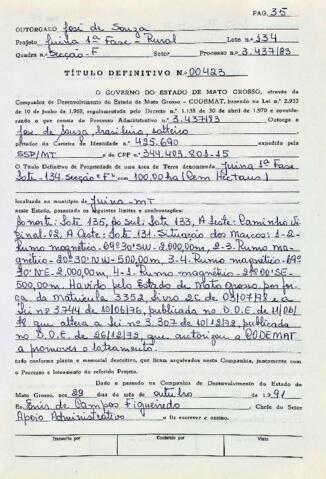 PAG. 35
OUTORGADO José de Souza
Projeto Juina 1ª Fase - Rural Lote n.º 134
Quadra n.º Secção-F Setor Processo n.º 3.437/83
TÍTULO DEFINITIVO N.º 00423
O GOVERNO DO ESTADO DE MATO GROSSO, através da
Companhia de Desenvolvimento do Estado de Mato Grosso - CODEMAT, baseado na Lei n.º 2.933
de 10 de junho de 1969, regulamentada pelo Decreto n.º 1.138 de 30 de abril de 1970 e considerando
o que consta do Processo Administrativo n.º 3.437/83 Outorga a
José de Souza, brasileiro, solteiro
portador da Carteira de Identidade n.º 425.690 expedida pela
SSP/MT e do CPF n.º 344.403.801-15
O Título Definitivo de Propriedade de uma área de Terra denominada Juina 1ª Fase
Lote - 134. Secção "F" com 100,00 ha (Cem Hectares)
localizada no município de Juina-MT
neste Estado, passando os seguintes limites e confrontações:
Ao norte: Lote 135, Ao Sul: Lote 133, A Leste: Caminho Vi
cinal-02. A Oeste: Lote 131. Situação dos Marcos: 1-2-
Rumo magnético - 69º30'SW - 2.000,00m, 2-3. Rumo ma-
gnético - 20º30'NW - 500,00m, 3.4. Rumo magnético - 69º
30'NE - 2.000,00m, 4-1. Rumo magnético - SE -
500,00m. Havido pelo Estado de Mato grosso por for
ça da Matrícula 3352, Livro 2C de 03/07/78 e a
Lei nº 3.744 de 10/06/76, publicada no D.O.E. de 11/06/
76 que altera a Lei nº 3.307 de 10/12/72, publicada
no D.O.E. de 26/12/72, que autorizou a CODEMAT
a promover o loteamento.
tudo conforme planta e memorial descritivo, que ficam arquivados nesta Companhia, juntamente com
o Processo e loteamento do referido Projeto.
Dado e passado na Companhia de Desenvolvimento do Estado de
Mato Grosso, aos 29 dias do mês de outubro de 1.991
Eu, Enir de Campos Figueiredo Chefe do Setor
Apoio Administrativo o fiz escrever e assino.
Transcrito por Conferido por Visto